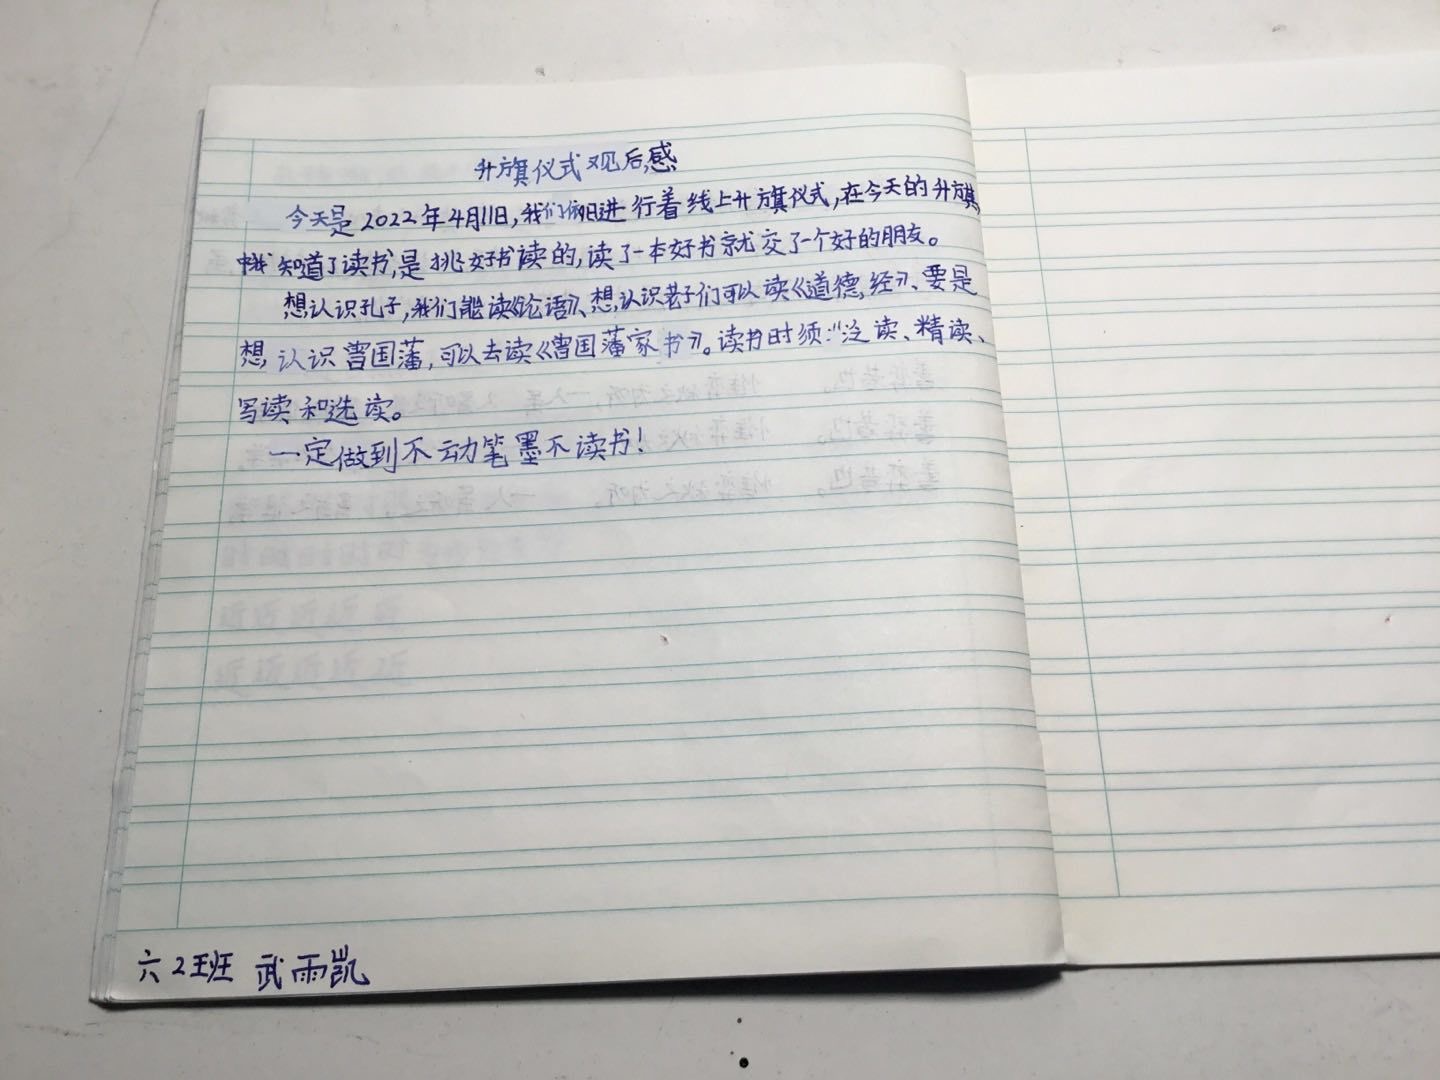 升旗仪式观后感
今天是2022年4月11日,我们日进行着线上升旗仪式,在今天的升旗
中我知道了读书,是挑好书读的,读了一本好书就交了一个好的朋友。
想认识孔子,我们能读《论语》、想认识老子们可以读《道德经》、要是
想认识曾国藩,可以去读《曾国藩家书》。读书时须:“泛读、精读、
写读和选读。
一定做到不动笔墨不读书!
六2班 武雨凯